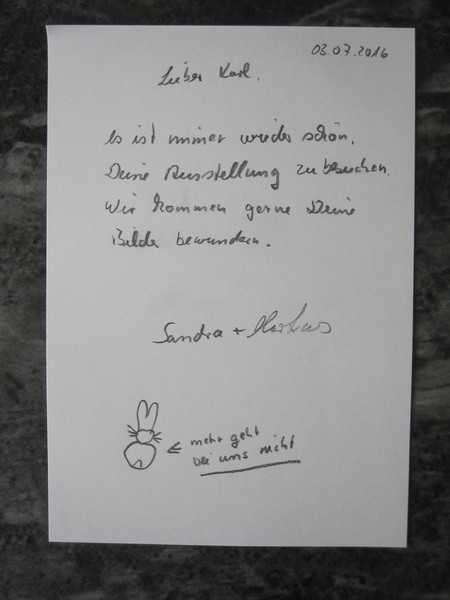 03.07.2016
Lieber Karl,
es ist immer wieder schön,
Deine Ausstellung zu besuchen.
Wir kommen gerne Deine
Bilder bewundern.
Sandra + Markus
mehr geht
bei uns nicht